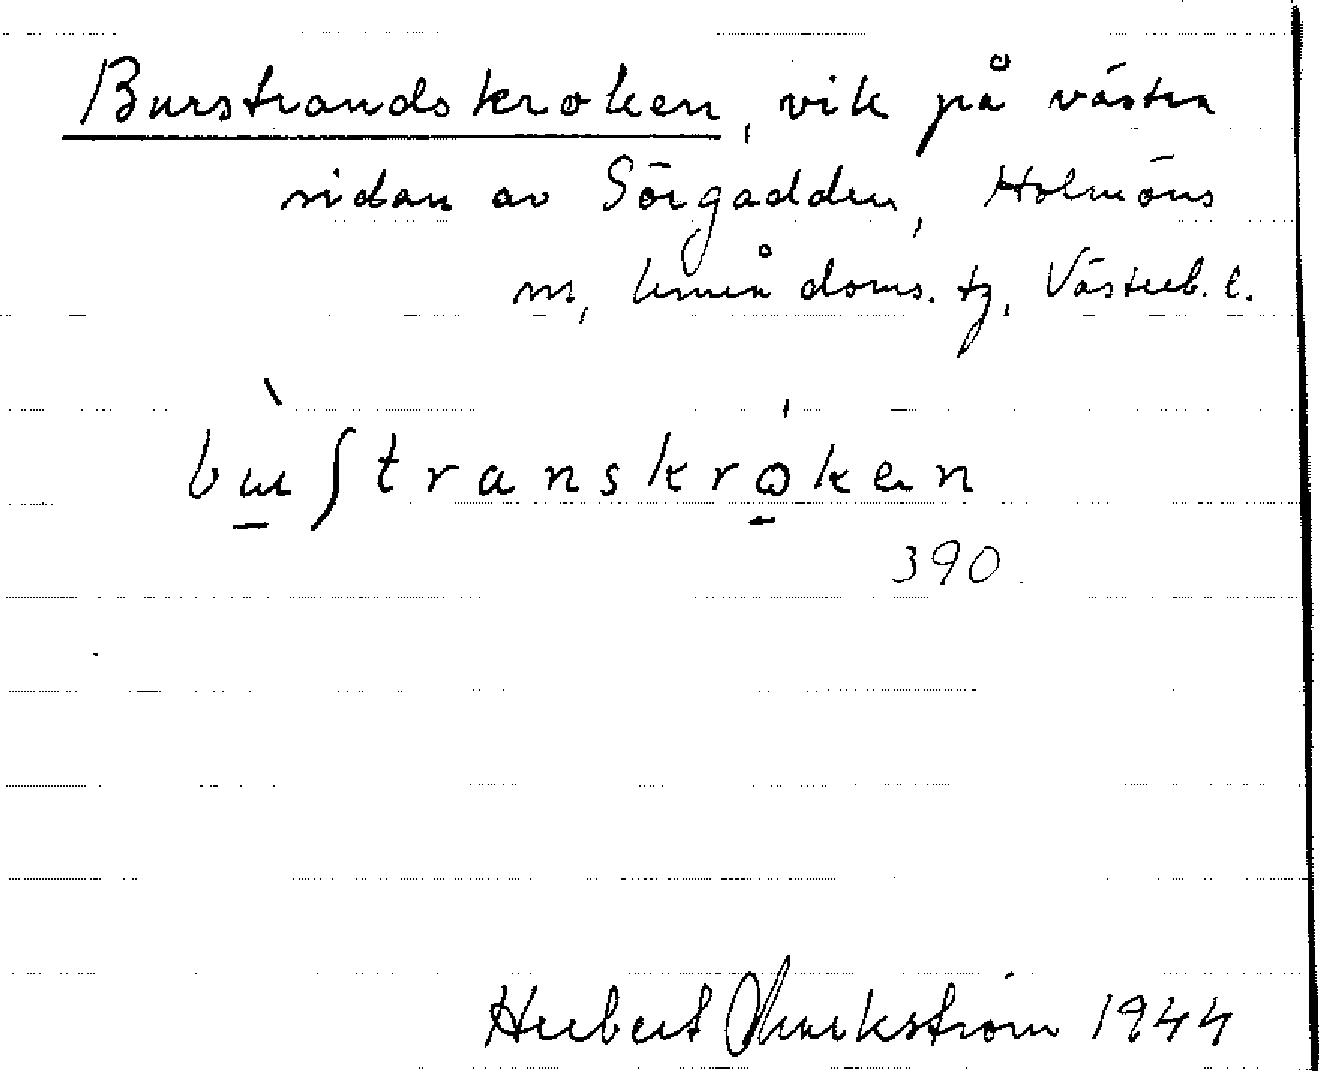 Burstrandskroken, vik på västra
sidan av Sörgadden, Holmöns
sn, Umeå doms. tg, Västerb. l.
bu̱ʃtranskro̱ken
390
Herbert Markström 1944